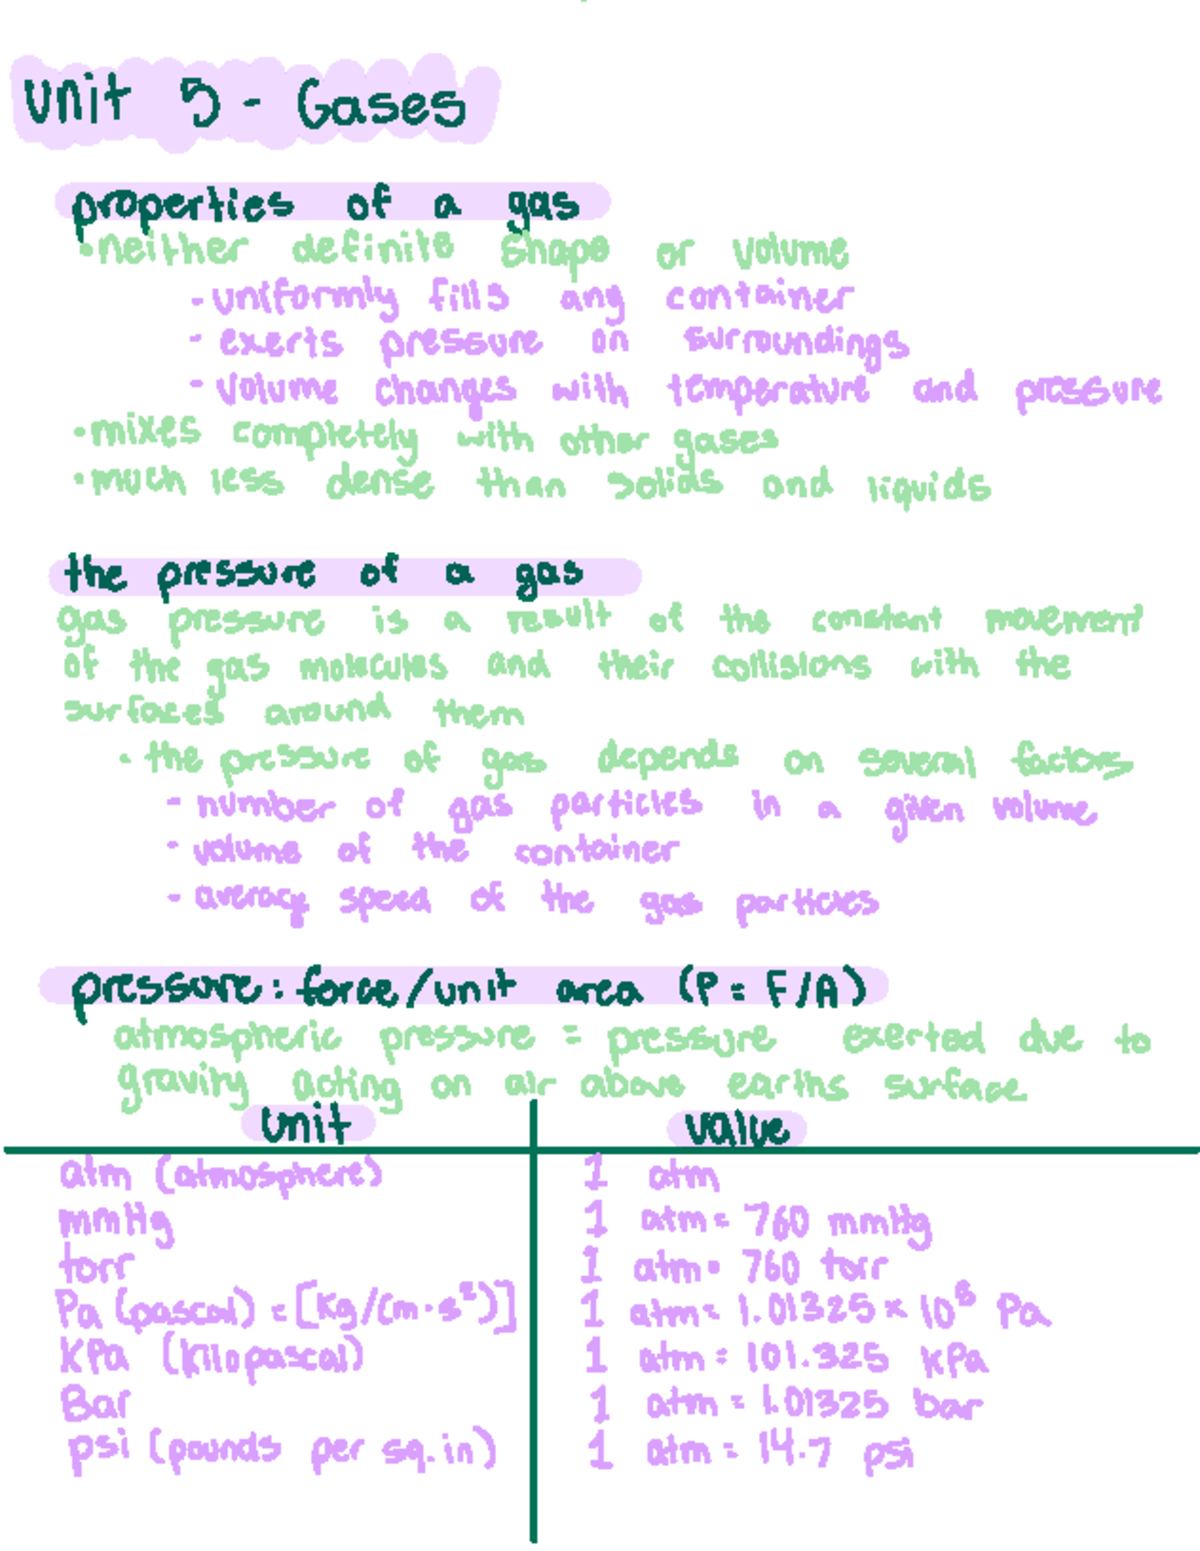 Unit 5 - Gases
properties of a gas
•neither definite shape or volume
-uniformly fills any container
- exerts pressure on surroundings
- volume changes with temperature and pressure
•mixes completely with other gases
•much less dense than solids and liquids
the pressure of a gas
gas pressure is a result of the constant movement
of the gas molecules and their collisions with the
surfaces around them
• the pressure of gas depends on several factors
- number of gas particles in a given volume
- volume of the container
- average speed of the gas particles
pressure: force/unit area (P = F/A)
atmospheric pressure = pressure exerted due to
gravity acting on air above earths surface
unit value
atm (atmosphere) 1 atm
mmHg 1 atm = 760 mmHg
torr 1 atm = 760 torr
Pa (pascal) = [Kg/(m·s²)] 1 atm = 1.01325 × 10⁵ Pa
KPa (kilopascal) 1 atm = 101.325 kPa
Bar 1 atm = 1.01325 bar
psi (pounds per sq. in) 1 atm = 14.7 psi